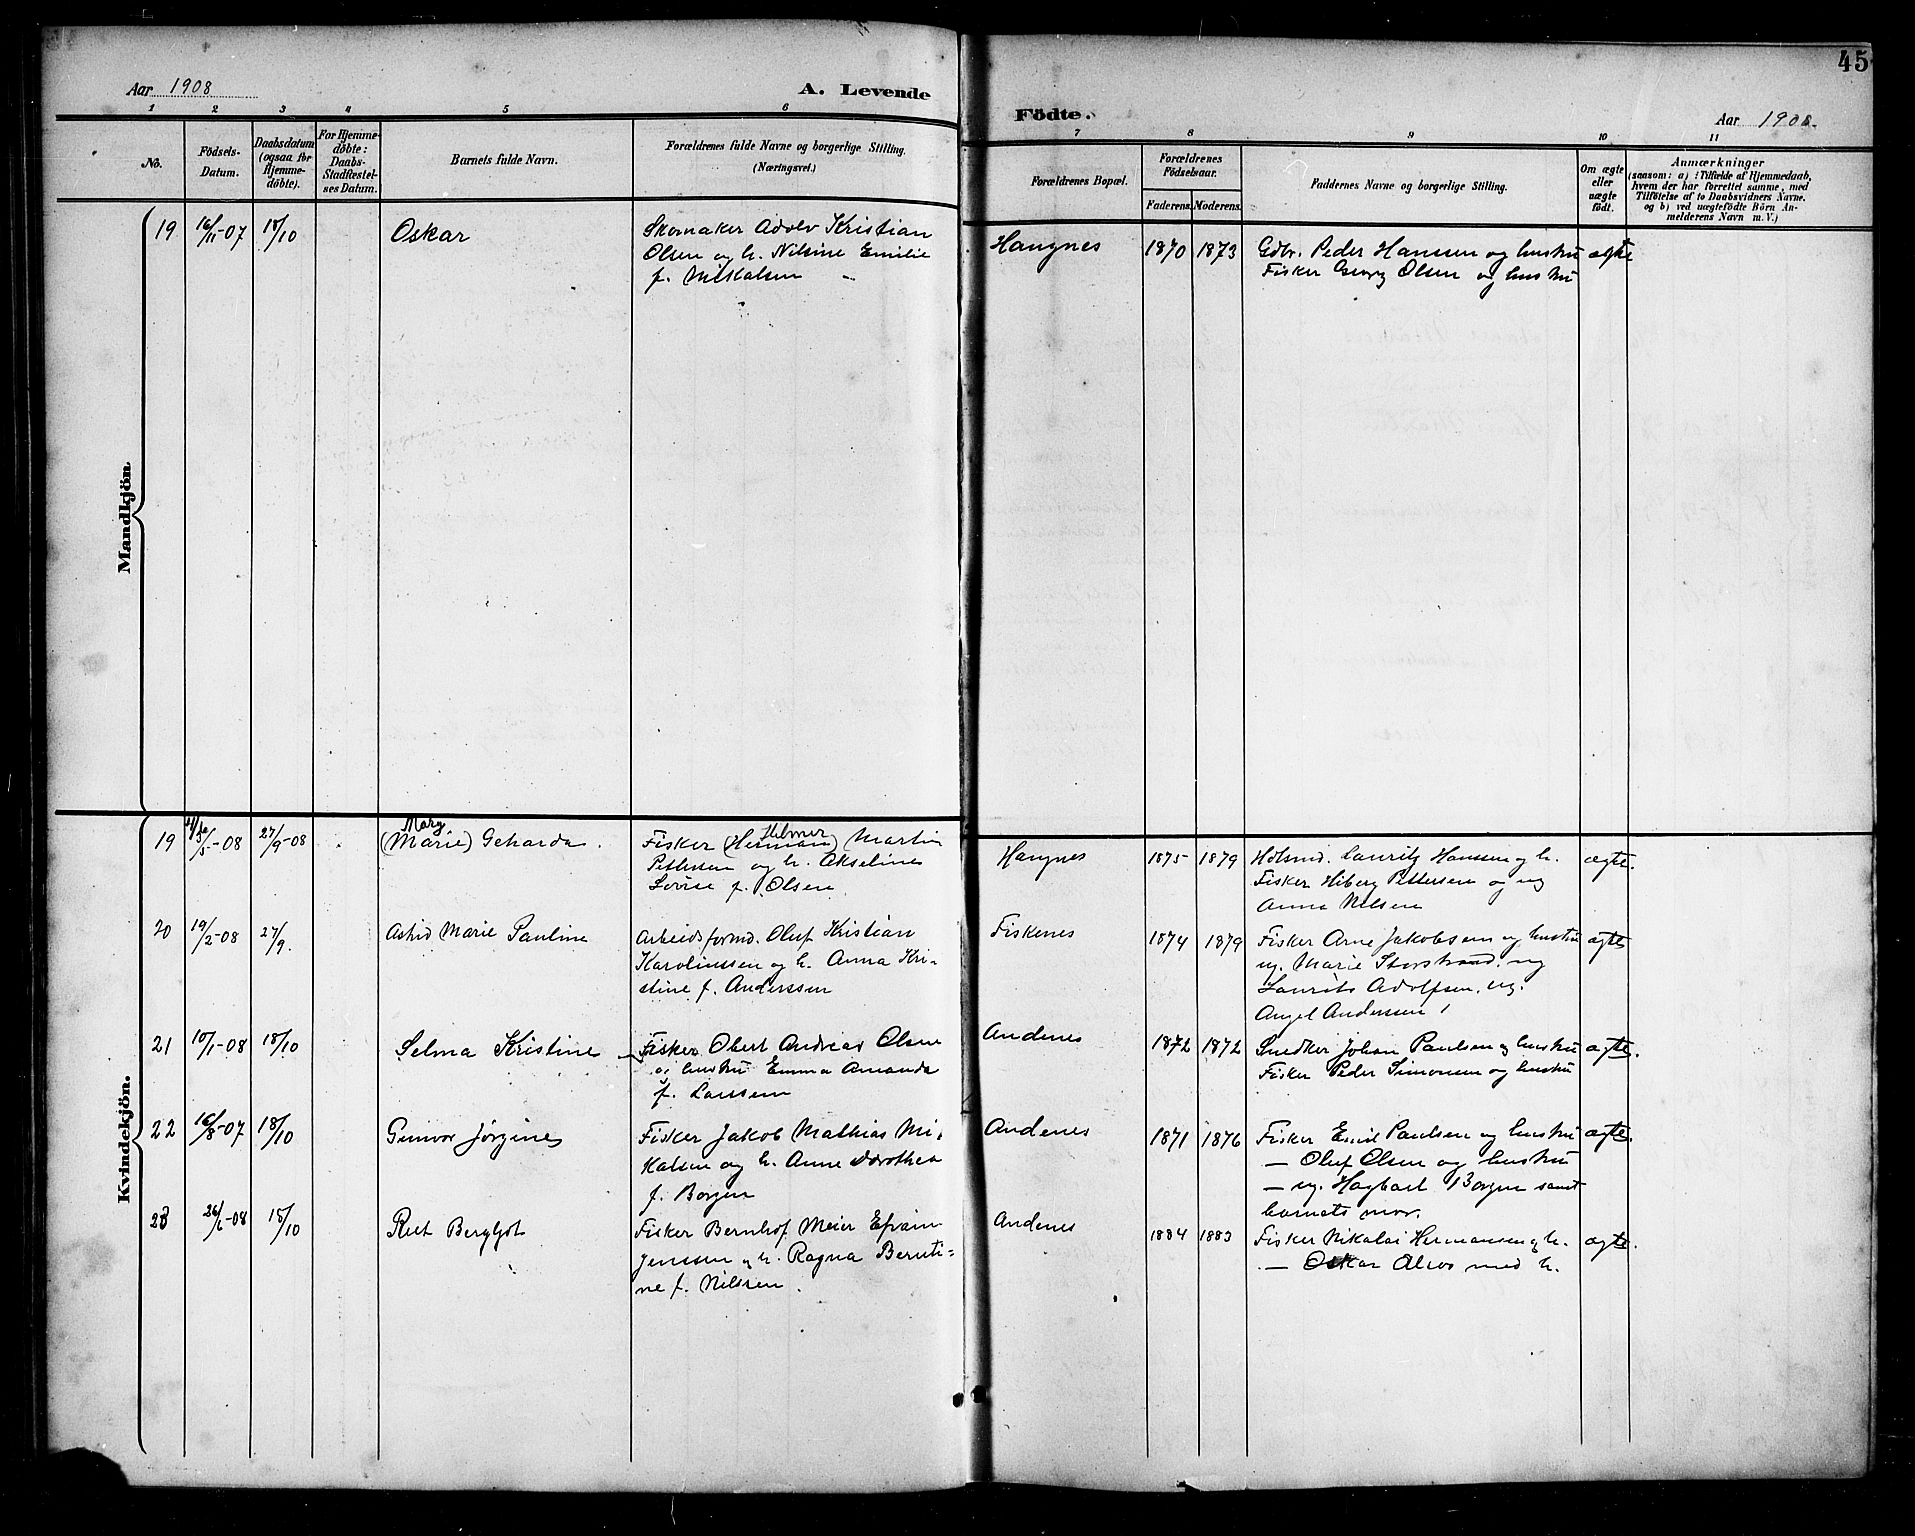 45
Aar 1908
A. Levende
Födte.
Aar 1908.
1 2 3 4 5 6 7 8 9 10 11
No.
Födsels-
Datum.
Daabsdatum
(ogsaa for
Hjemme-
döbte).
For Hjemme-
döbte:
Daabs-
Stadfæstel-
ses Datum.
Barnets fulde Navn.
Forældrenes fulde Navne og borgerlige Stilling.
(Næringsvei.)
Forældrenes Bopæl.
Forældrenes
Födselsaar.
Faderens. Moderens.
Faddernes Navne og borgerlige Stilling.
Om ægte
eller
uægte
födt.
Anmærkninger
(saasom: a) i Tilfælde af Hjemmedaab,
hvem der har forrettet samme, med
Tilföielse af to Daabsvidners Navne.
og b) ved uægtefödte Börn An-
melderens Navn m. V.)
Mandkjön.
19 16/11-07 18/10 Oskar
Skomaker Adolv Kristian
Olsen og h. Nilsine Emilie
f. Nikalsen
Haugnes 1870 1873
Gdbr. Peder Hanssen og hustru
Fisker Georg Olsen og hustru
ægte
Kvindekjön.
19 /5-08 27/9-08
Mary
(Marie) Geharda.
Hilmer
Fisker (Herman) Martin
Pettersen og h. Akseline
Lovise f. Olsen
Haugnes 1875 1879
Holsmd. Lauritz Hanssen og h.
Fisker Hiberg Pettersen og ug
Anna Nilsen
ægte.
20 19/2-08 27/9. Astrid Marie Pauline
Arbeidsformd. Oluf Kristian
Karolinssen og h. Anna Kri-
stine f. Anderssen
Fiskenes 1874 1879
Fisker Arne Jakobsen og hustru
ug. Marie Storstrand. ug
Laurits Adolfsen, ug.
Angel Anderssen
ægte
21 10/1-08 18/10 Selma Kristine
Fisker Obert Andreas Olsen
og hustru Emma Amanda
f. Larssen
Andenes 1872 1872
Snedker Johan Paulsen og hustru
Fisker Peder Simonsen og hustru
ægte.
22 16/8-07 18/10 Gunvor Jørgines
Fisker Jakob Mathias Mi-
kalsen og h. Anne Dorothea
f. Borgen
Andenes 1871 1876
Fisker Emil Paulsen og hustru
— Oluf Olsen og hustru
— ug. Hagbart Borgen samt
barnets mor.
ægte.
23 26/6-08 18/10 Rut Bergljot
Fisker Bernhof Meier Efraim
Jenssen og h. Ragna Bernti-
ne f. Nilsen.
Andenes 1884 1883
Fisker Nikolai Hermansen og h.
— Oskar Alvos med h.
ægte.